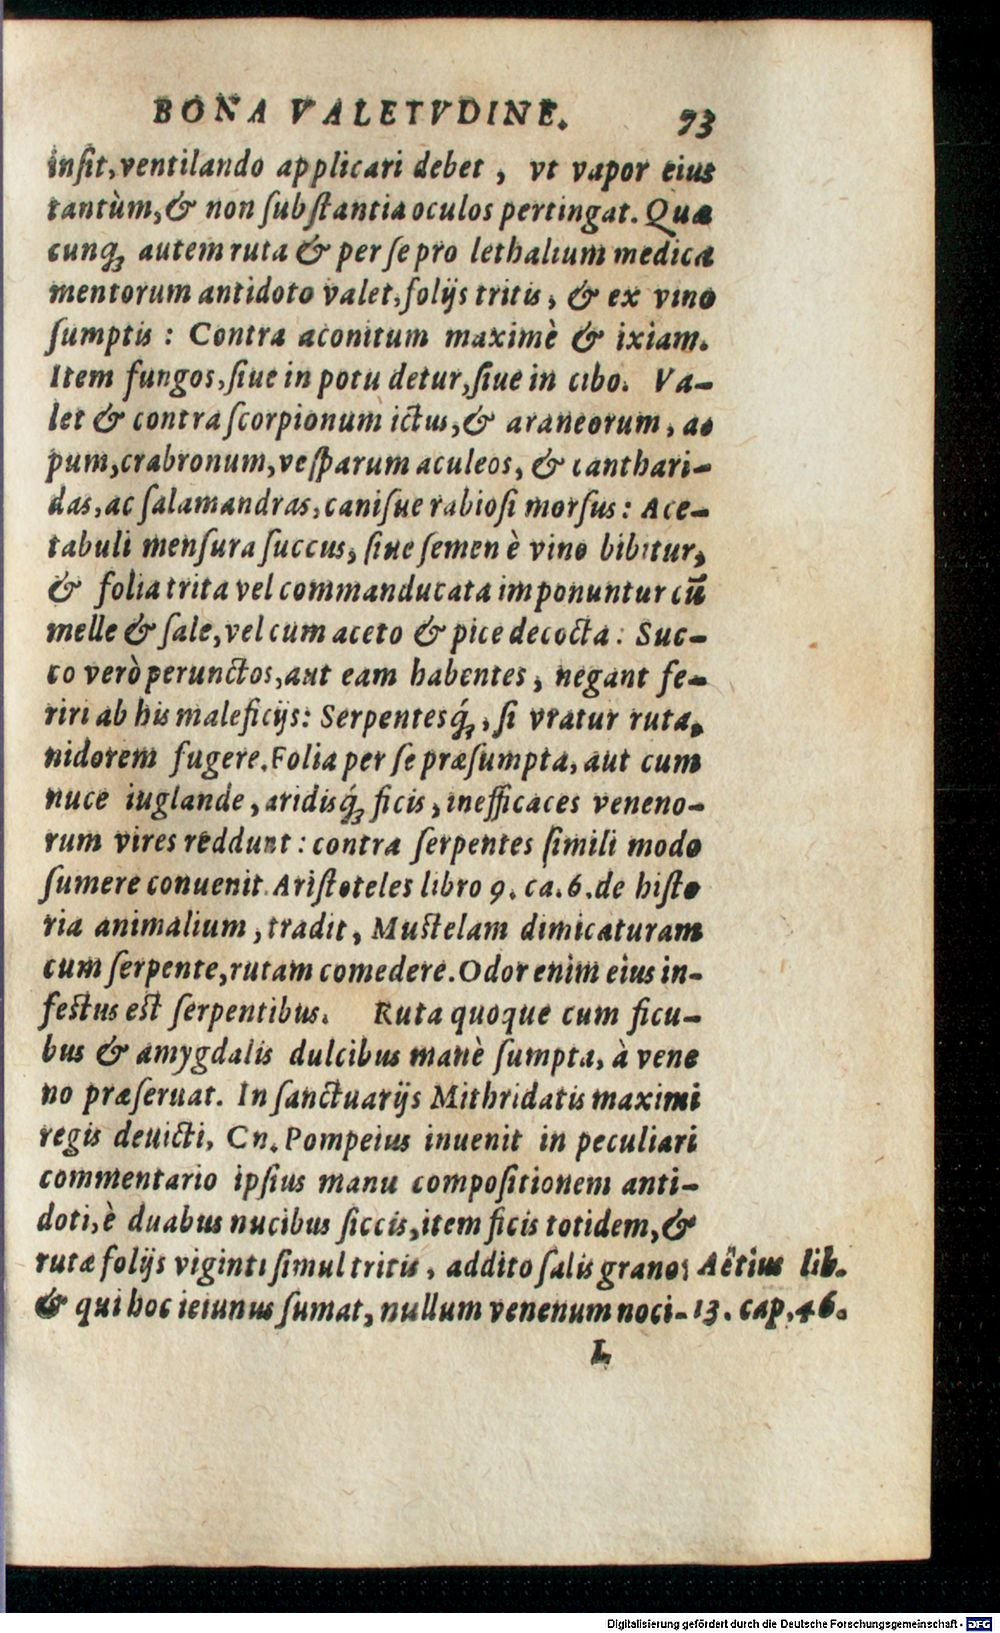 BONA VALETVDINE. 73
inſit, ventilando applicari debet, vt vapor eius
tantùm, & non ſubſtantia oculos pertingat. Quæ
cunq; autem ruta & per ſe pro lethalium medica
mentorum antidoto valet, folijs tritis, & ex vino
ſumptis: Contra aconitum maximè & ixiam.
Item fungos, ſiue in potu detur, ſiue in cibo. Va-
let & contra ſcorpionum ictus, & araneorum, ao
pum, crabronum, veſparum aculeos, & canthari-
das, ac ſalamandras, caniſue rabioſi morſus: Ace-
tabuli menſura ſuccus, ſiue ſemen è vino bibitur,
& folia trita vel commanducata imponuntur cū
melle & ſale, vel cum aceto & pice decocta: Suc-
co verò perunctos, aut eam habentes, negant fe-
riri ab his maleficijs: Serpentesq́;, ſi vratur ruta,
nidorem fugere. Folia per ſe præſumpta, aut cum
nuce iuglande, aridisq́; ficis, inefficaces veneno-
rum vires reddunt: contra ſerpentes ſimili modo
ſumere conuenit. Ariſtoteles libro 9. ca. 6. de hiſto
ria animalium, tradit, Muſtelam dimicaturam
cum ſerpente, rutam comedere. Odor enim eius in-
feſtus eſt ſerpentibus. Ruta quoque cum ficu-
bus & amygdalis dulcibus manè ſumpta, à vene
no præſeruat. In ſanctuarijs Mithridatis maximi
regis deuicti, Cn. Pompeius inuenit in peculiari
commentario ipſius manu compoſitionem anti-
doti, è duabus nucibus ſiccis, item ficis totidem, &
rutæ folijs viginti ſimul tritis, addito ſalis grano: Aëtius lib.
& qui hoc ieiunus ſumat, nullum venenum noci- 13. cap. 46.
L
Digitalisierung gefördert durch die Deutsche Forschungsgemeinschaft - DFG